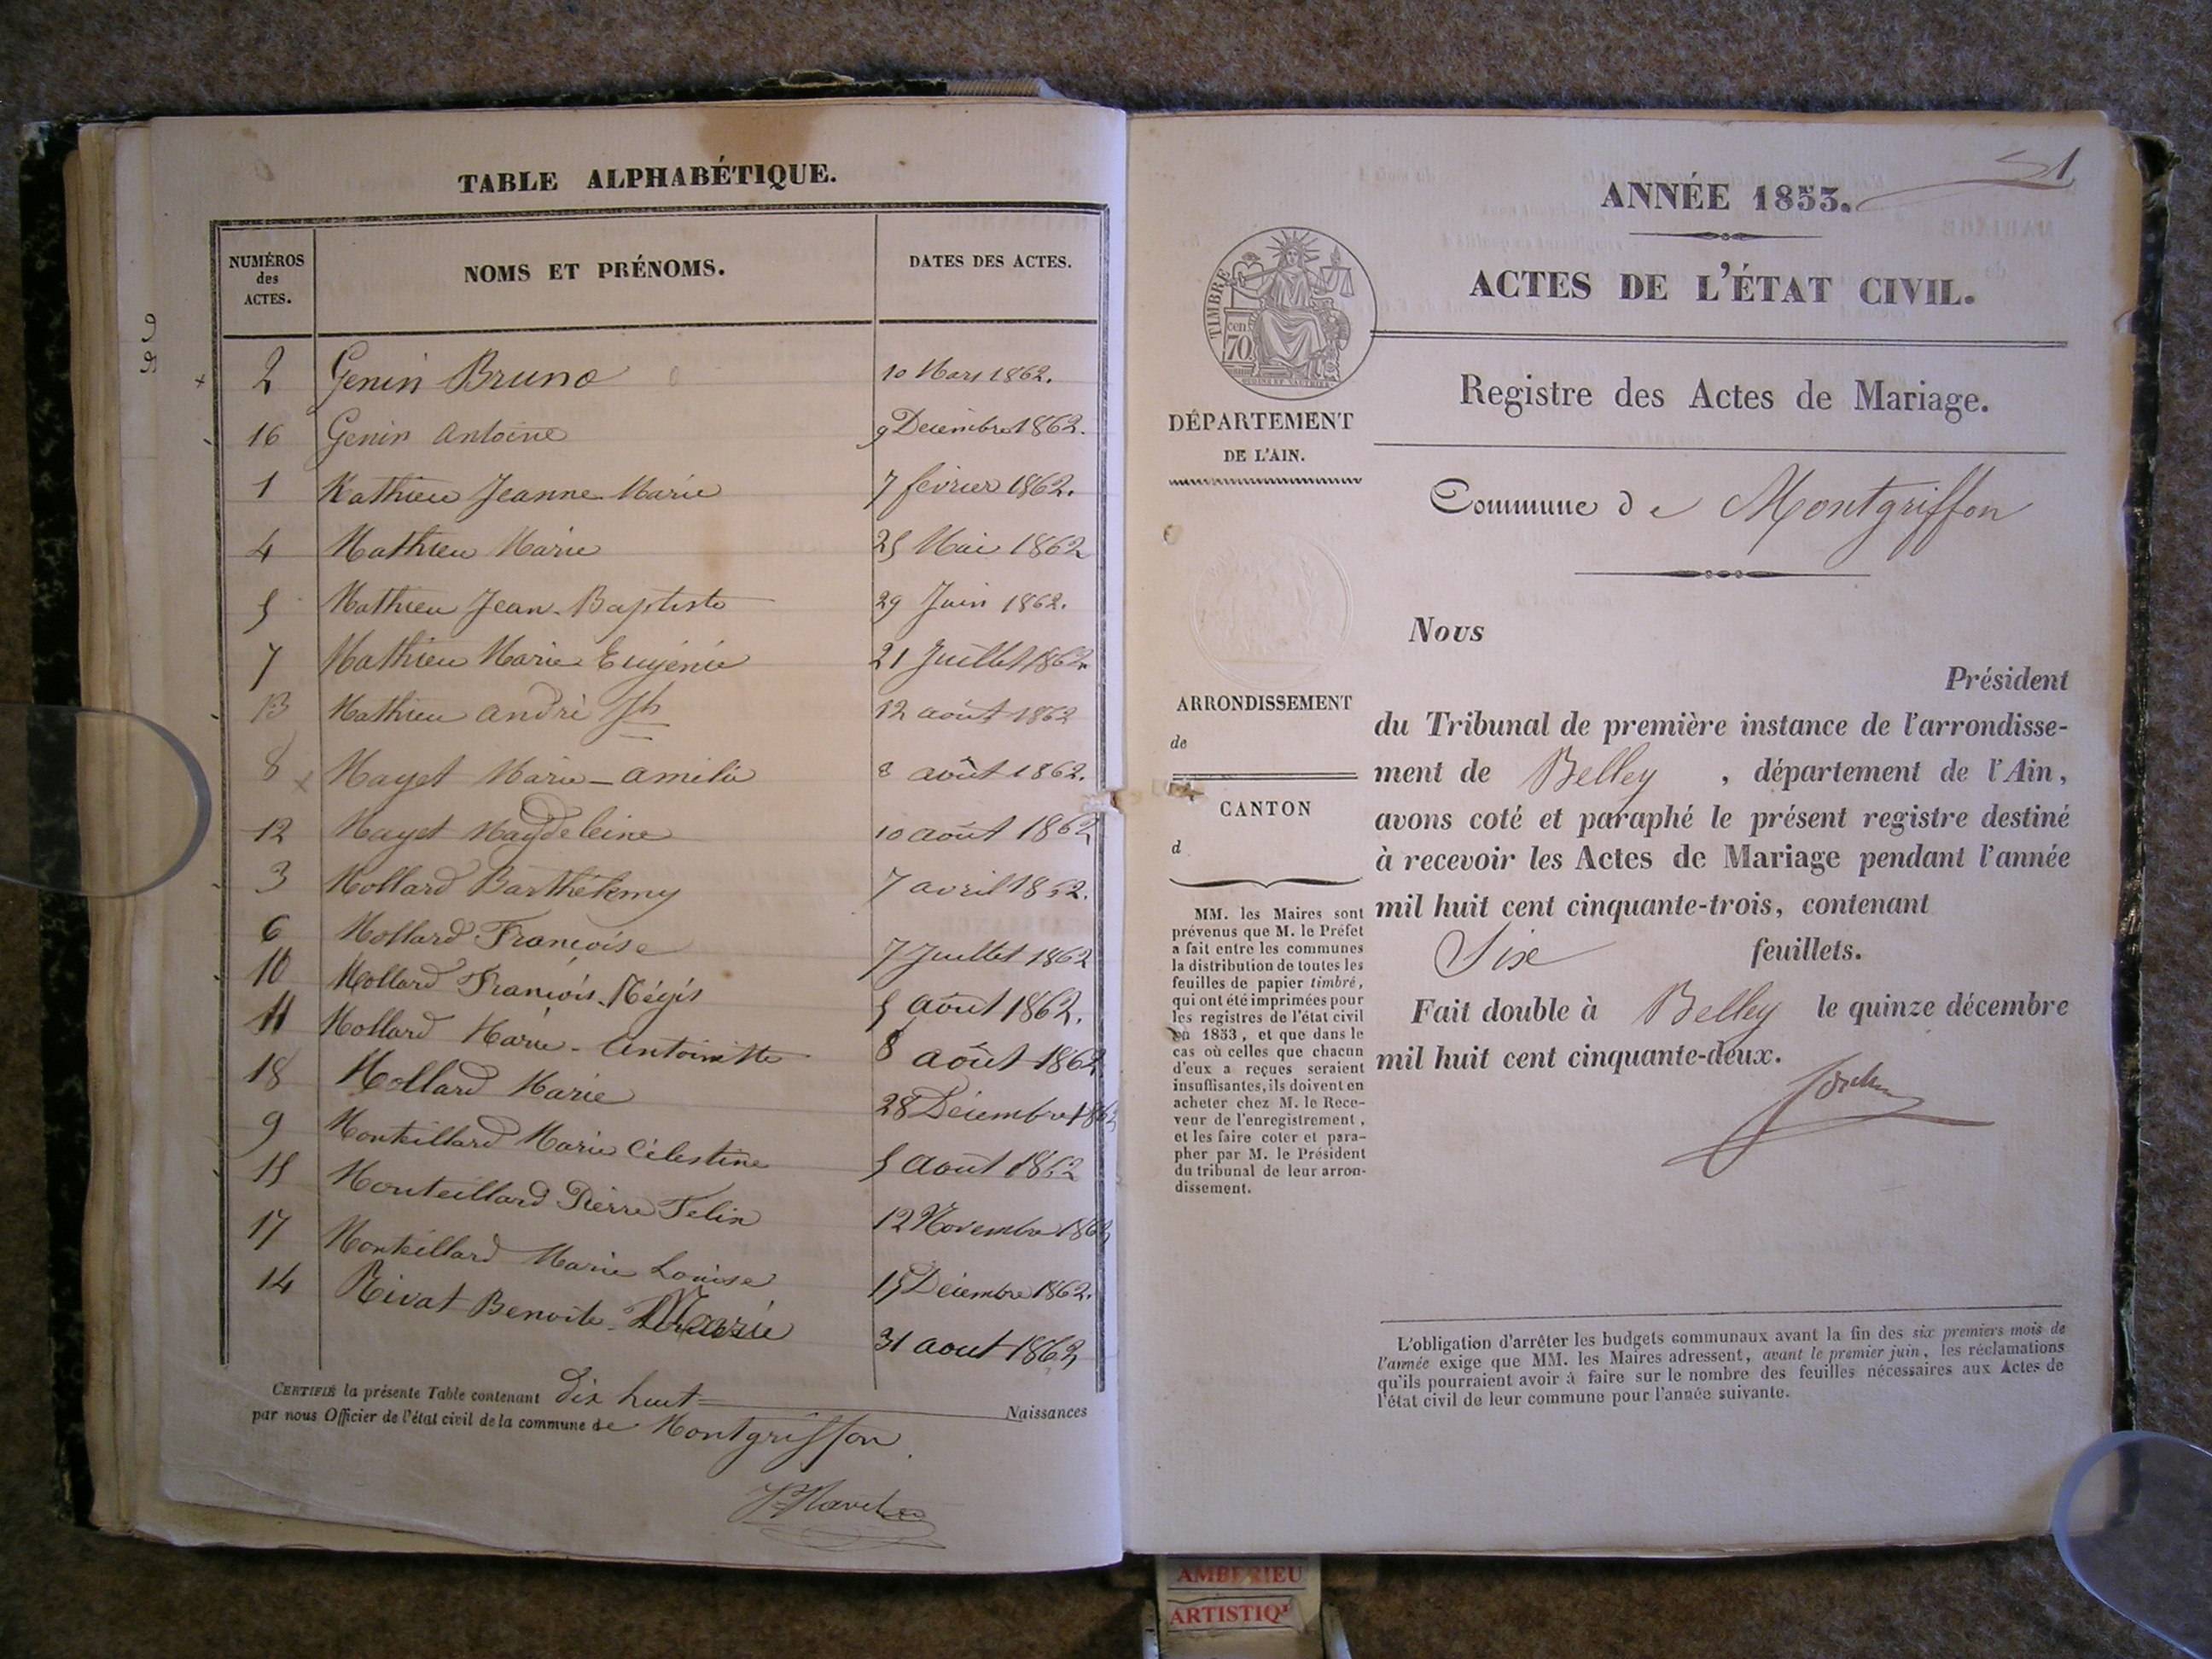 TABLE ALPHABÉTIQUE.
NUMÉROS des ACTES. NOMS ET PRÉNOMS. DATES DES ACTES.
2 Genin Bruno 10 Mars 1862.
16 Genin Antoine 9 Decembre 1862.
1 Mathieu Jeanne Marie 7 fevrier 1862.
4 Mathieu Marie 25 Mai 1862
5 Mathieu Jean-Baptiste 29 Juin 1862.
7 Mathieu Marie Eugénie 21 Juillet 1862
13 Mathieu andré Jh 12 août 1862
8 Mayet Marie-amélie 8 août 1862.
12 Mayet Magdeleine 10 août 1862
3 Mollard Barthélemy 7 avril 1862.
6 Mollard Françoise 7 Juillet 1862
10 Mollard François-Régis 5 août 1862.
11 Mollard Marie-Antoinette 8 août 1862
18 Mollard Marie 28 Décembre 1862
9 Monteillard Marie Célestine 5 août 1862
15 Monteillard Pierre Felix 12 Novembre 1862
17 Monteillard Marie Louise 15 Décembre 1862.
14 Rivat Benoite Marie 31 aout 1862
CERTIFIÉ la présente Table contenant dix huit Naissances
par nous Officier de l'état civil de la commune de Montgriffon
51
ANNÉE 1853.
ACTES DE L'ÉTAT CIVIL.
TIMBRE
cen
70
Registre des Actes de Mariage.
DÉPARTEMENT
DE L'AIN.
Commune de Montgriffon
Nous
Président
du Tribunal de première instance de l'arrondisse-
ment de Belley, département de l'Ain,
avons coté et paraphé le présent registre destiné
à recevoir les Actes de Mariage pendant l'année
mil huit cent cinquante-trois, contenant
Six feuillets.
Fait double à Belley le quinze décembre
mil huit cent cinquante-deux.
ARRONDISSEMENT
de
CANTON
d
MM. les Maires sont
prévenus que M. le Préfet
a fait entre les communes
la distribution de toutes les
feuilles de papier timbré,
qui ont été imprimées pour
les registres de l'état civil
en 1853, et que dans le
cas où celles que chacun
d'eux a reçues seraient
insuffisantes, ils doivent en
acheter chez M. le Rece-
veur de l'enregistrement,
et les faire coter et para-
pher par M. le Président
du tribunal de leur arron-
dissement.
L'obligation d'arrêter les budgets communaux avant la fin des six premiers mois de
l'année exige que MM. les Maires adressent, avant le premier juin, les réclamations
qu'ils pourraient avoir à faire sur le nombre des feuilles nécessaires aux Actes de
l'état civil de leur commune pour l'année suivante.
AMBERIEU
ARTISTIQ